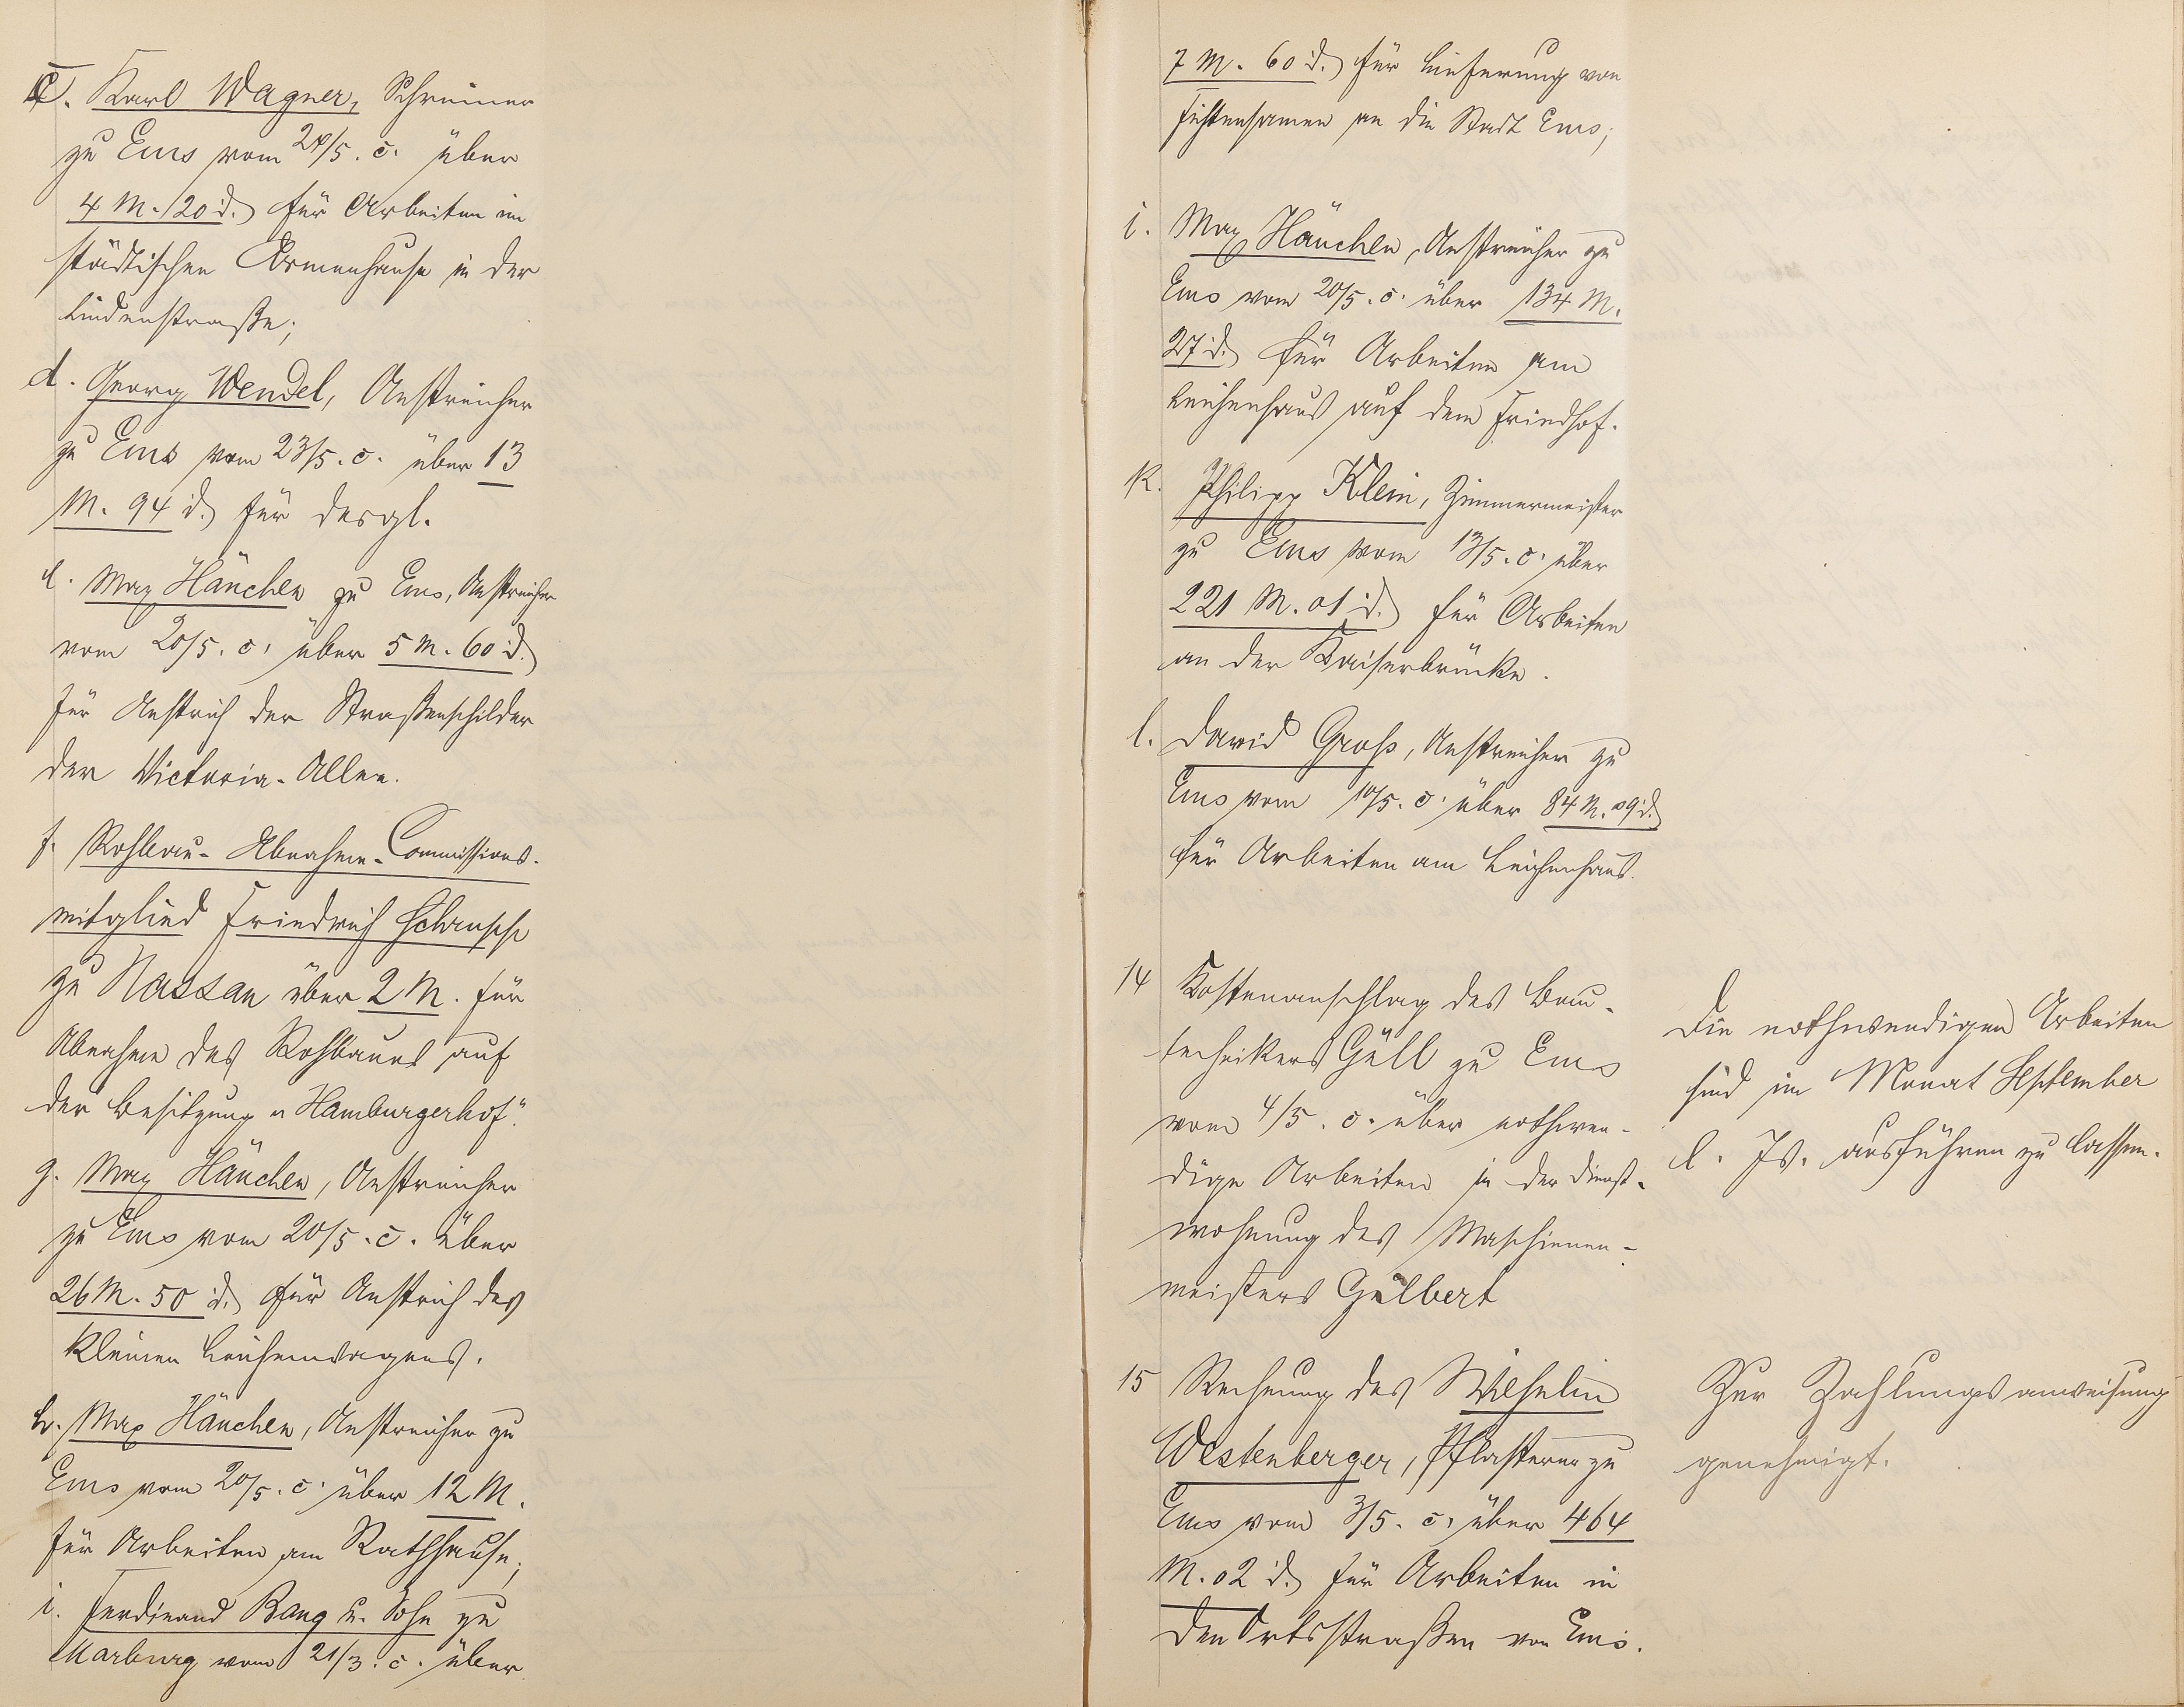 c. Karl Wagner, Schreiner
zu Ems vom 24/5. c. über
4 M. 20 d. für Arbeiten im
städtischen Armenhause in der
Lindenstraße;
d. Georg Wendel, Anstreicher
zu Ems vom 23/5. c. über 13
M. 94 d. für desgl.
e. Max Hänchen zu Ems, Anstreicher
vom 20/5. c. über 5 M. 60 d.
für Anstrich der Straßenschilder
der Victoria-Allee.
f. Rohbau-Abnahme-Commissions-
mitglied Friedrich
zu Nassau über 2 M. für
Abnahme des Rohbaues auf
der Besitzung "Hamburgerhof".
g. Max Hänchen, Anstreicher
zu Ems vom 20/5. c. über
26 M. 50 d. für Anstrich des
kleinen Leichenwagens.
h. Max Hänchen, Anstreicher zu
Ems vom 20/5. c. über 12 M.
für Arbeiten am Rathhause;
i. Ferdinand Bang u. Sohn zu
Marburg vom 21/3. c. über
7 M. 60 d. für Lieferung von
Fichtensamen an die Stadt Ems;
i. Max Hänchen, Anstreicher zu
Ems vom 20/5. c. über 134 M.
27 d. für Arbeiten am
Leichenhaus auf dem Friedhof.
k. Philipp Klein, Zimmermeister
zu Ems vom 13/5. c. über
221 M. 01 d. für Arbeiten
an der Kaiserbrücke.
l. David Groß, Anstreicher zu
Ems vom 10/5. c. über 84 M. 09 d.
für Arbeiten am Leichenhaus.
14 Kostenanschlag des Bau-
technikers Güll zu Ems
vom 4/5. c. über nothwen-
dige Arbeiten in der Dienst-
wohnung des Maschienen-
meisters Gilbert
Die nothwendigen Arbeiten
sind im Monat September
l. Js. ausführen zu lassen.
15 Rechnung des Wilhelm
Westenberger, Pflasterer zu
Ems vom 3/5. c. über 464
M. 02 d. für Arbeiten in
den Ortsstraßen von Ems.
Zur Zahlungsanweisung
genehmigt.